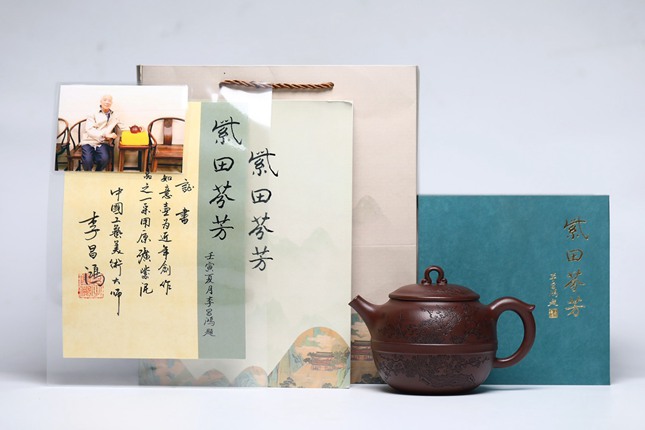 紫田芬芳
紫田芬芳
壬寅夏月李昌鴻题
证書
如意壶为近年創作
品之一采用原礦紫泥
中國工藝美術大师
李昌鴻
紫田芬芳
李昌鴻题